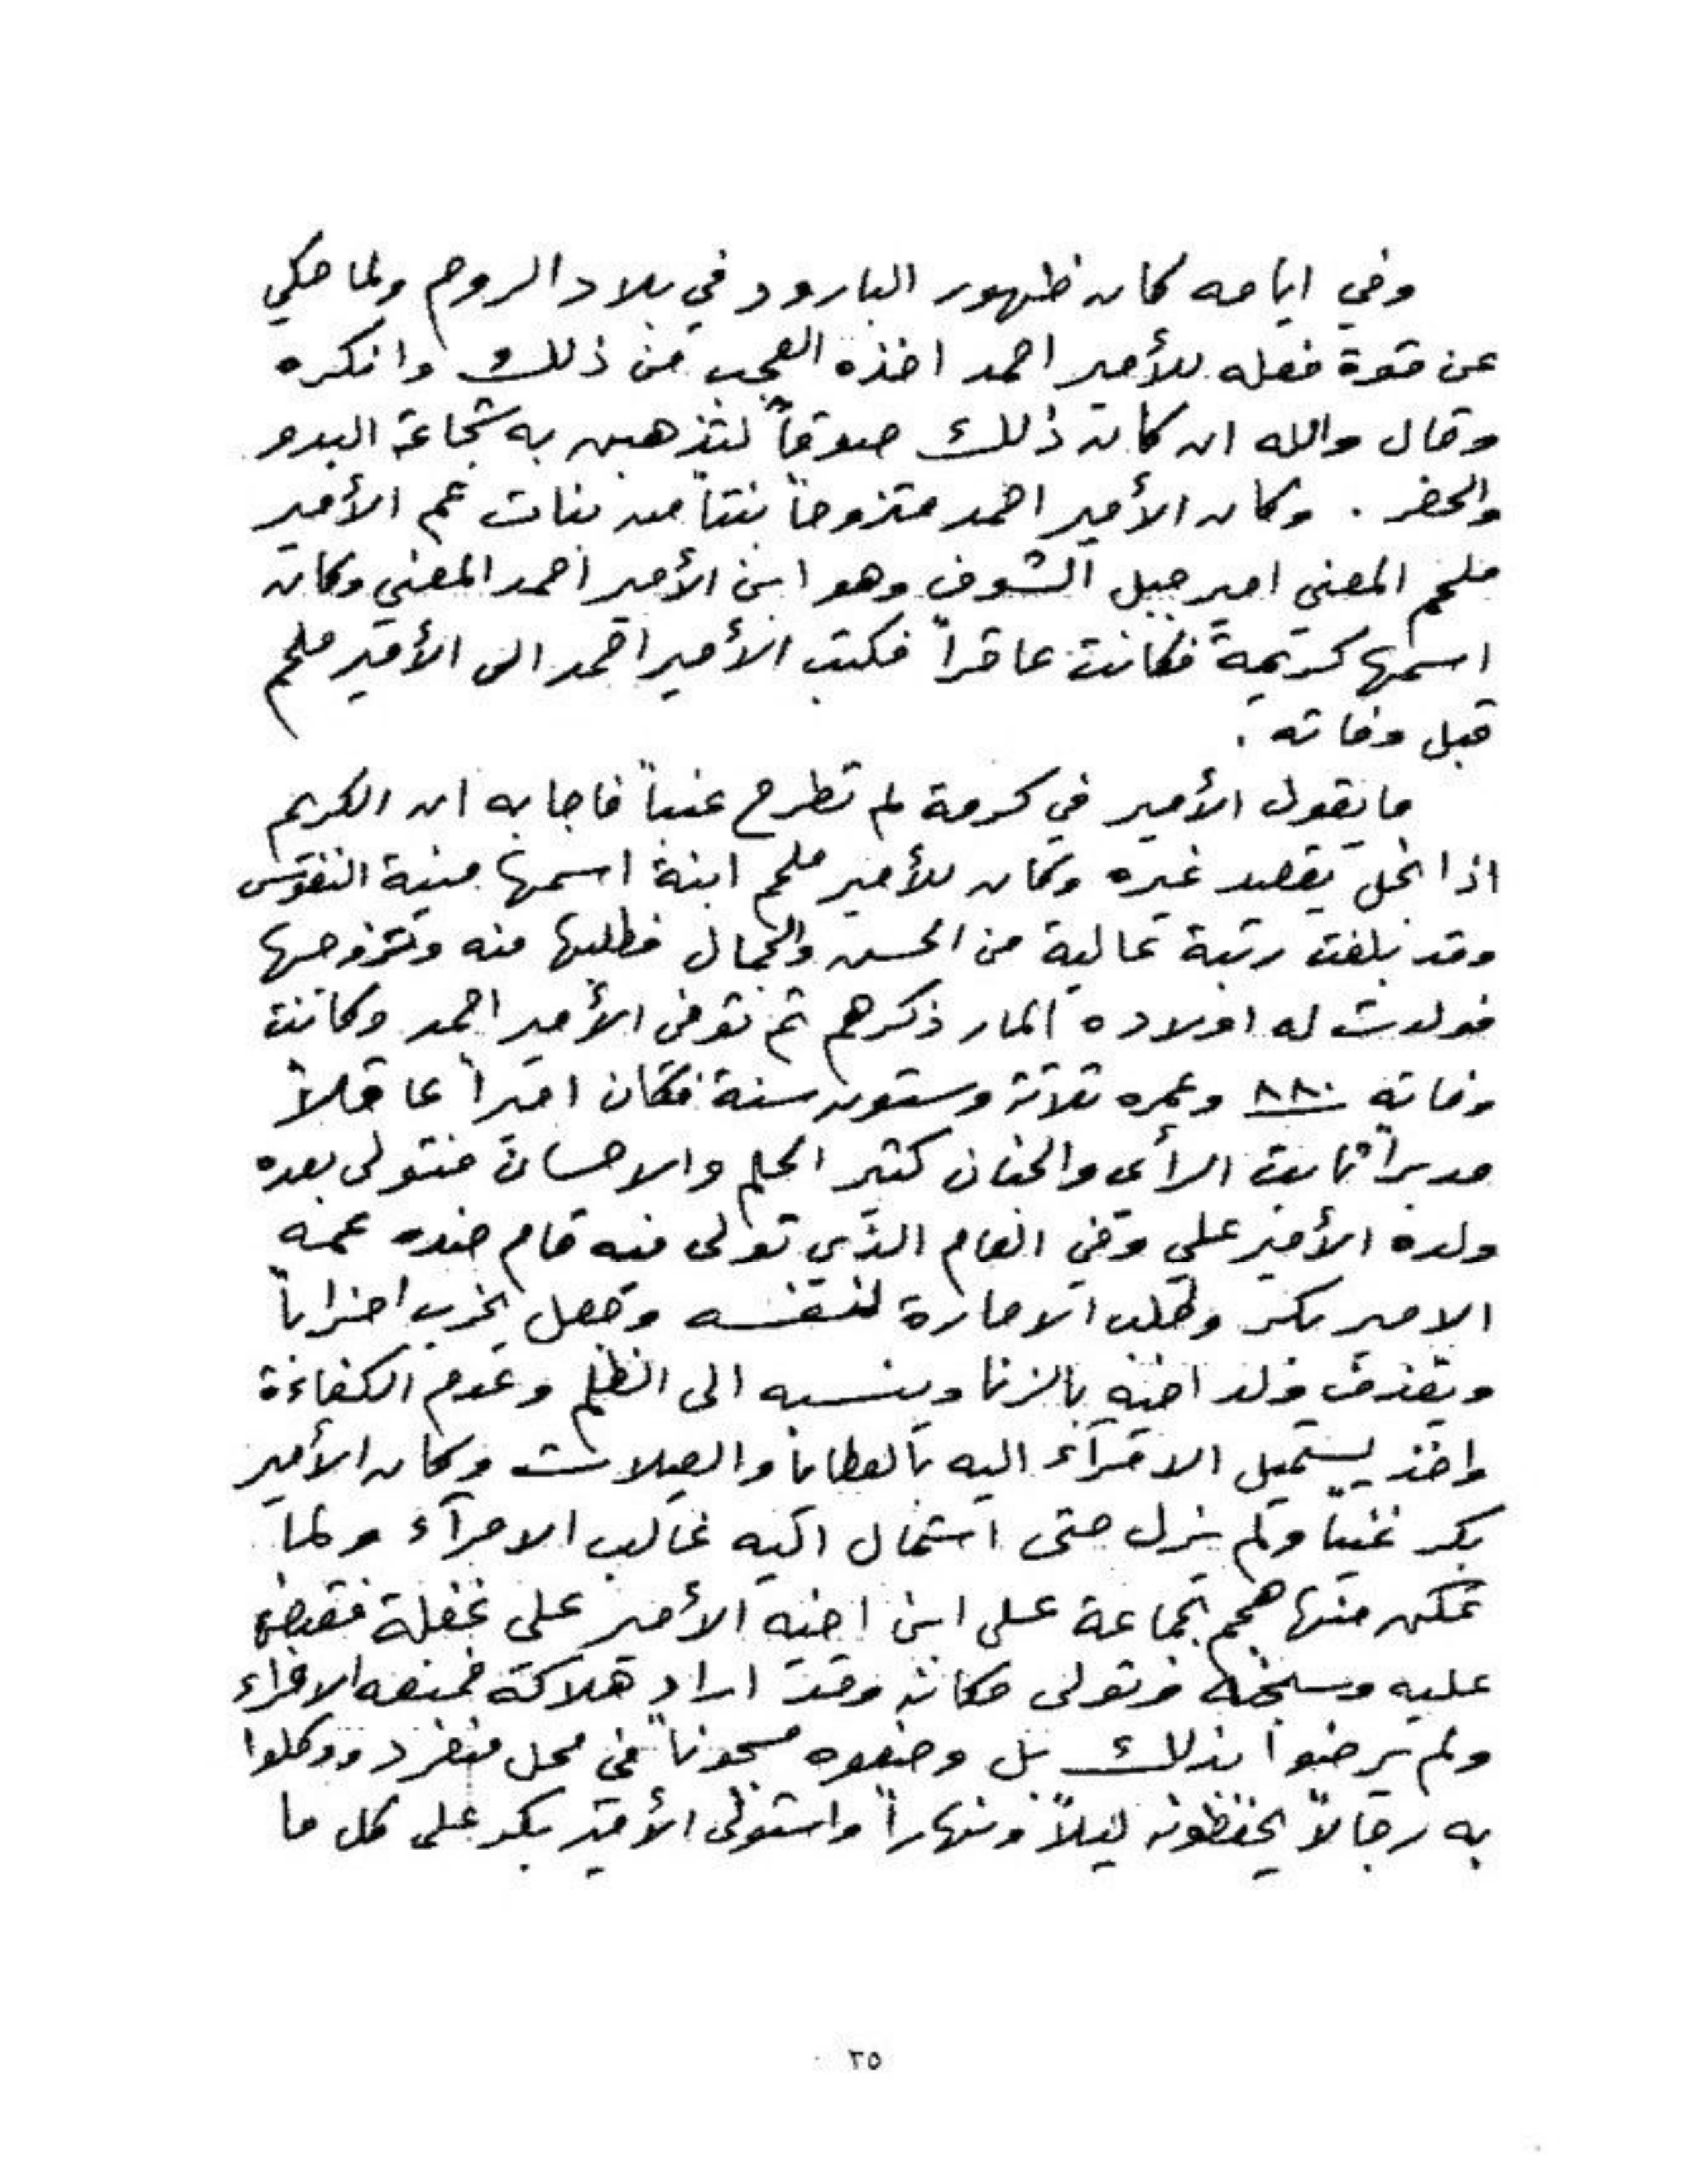 وفي ايامه كان ظهور البارود في بلاد الروم ولما حكي
عن قوة فعله للأمير احمد اخذه العجب من ذلك وانكره
وقال والله ان كان ذلك صدقاً لتذهبن به شجاعة البدو
والحضر . وكان الأمير احمد متزوجاً بنتاً من بنات عم الأمير
ملحم المعني امير جبل الشوف وهو ابن الأمير احمد المعني وكان
اسمها كريمة فكانت عاقراً فكتب الأمير احمد الى الأمير ملحم
قبل وفاته .
ما يقول الأمير في كرمة لم تطرح عنباً فاجابه ان الكريم
اذا انحل يقصد غيره وكان للأمير ملحم ابنة اسمها منية النفوس
وقد بلغت رتبة عالية من الحسن والجمال فطلبها منه وتزوجها
فولدت له اولاده المار ذكرهم ثم توفى الأمير احمد وكانت
وفاته ٨٨٠ وعمره ثلاثة وستون سنة فكان اميراً عاقلاً
مدبراً ثابت الرأى والجنان كثير الحلم والاحسان فتولى بعده
ولده الأمير علي وفي العام الذي تولى فيه قام ضده عمه
الامير بكر وطلب الامارة لنفسه وجعل يحزب احزاباً
ويقذف ولد اخيه بالزنا وينسبه الى الظلم وعدم الكفاءة
واخذ يستميل الامرآء اليه بالعطايا والصلات وكان الأمير
بكر غنياً ولم يزل حتى استمال اليه غالب الامرآء ولما
تمكن منها هجم بجماعة على ابن اخيه الأمير على غفلة فقبض
عليه وسجنه وتولى مكانه وقد اراد هلاكه فمنعه الامراء
ولم يرضوا بذلك بل وضعوه مسجوناً في محل منفرد ووكلوا
به رجالاً يحفظونه ليلاً ونهاراً واستولى الأمير بكر على كل ما
٢٥